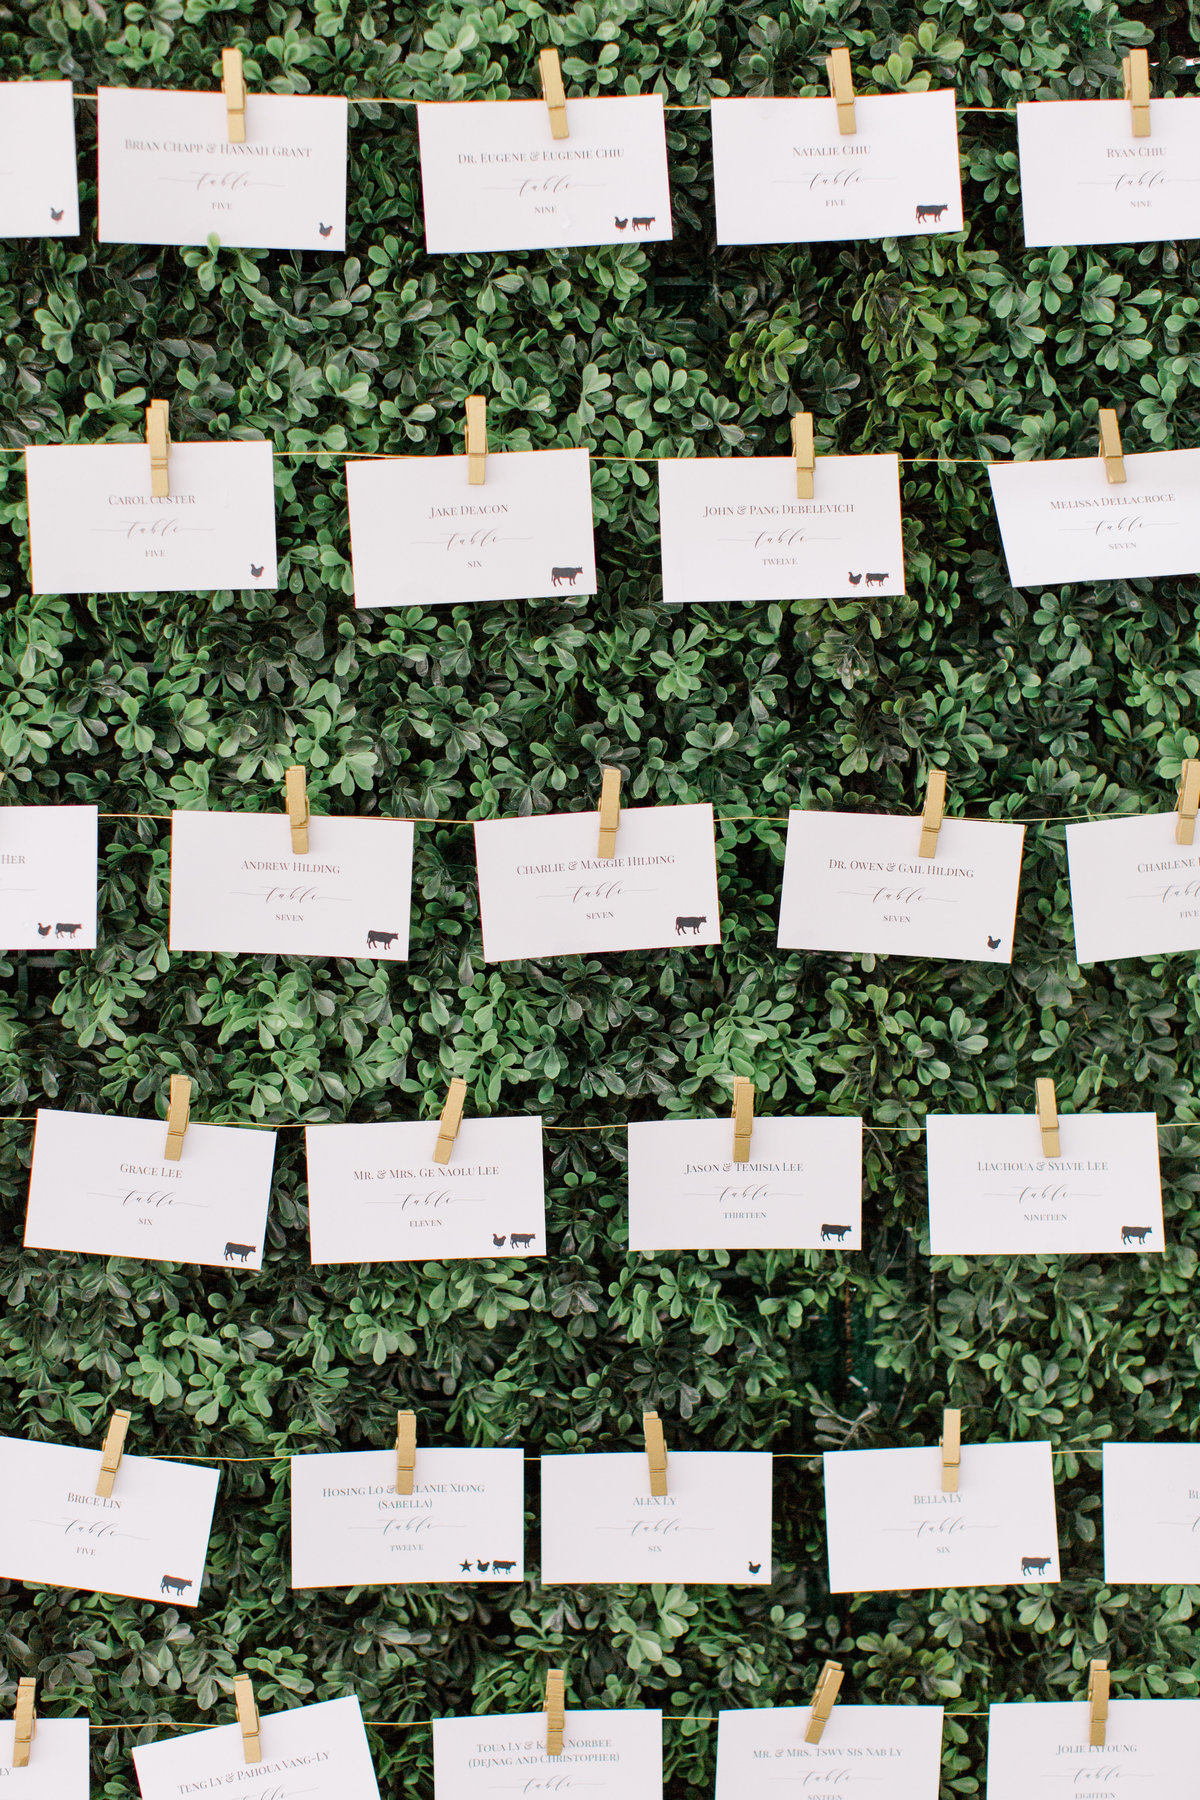 BRIAN CHAPP & HANNAH GRANT
table
FIVE
DR. EUGENE & EUGENIE CHIU
table
NINE
NATALIE CHIU
table
FIVE
RYAN CHIU
table
NINE
CAROL CUSTER
table
FIVE
JAKE DEACON
table
SIX
JOHN & PANG DEBELEVICH
table
TWELVE
MELISSA DELLACROCE
table
SEVEN
HER
ANDREW HILDING
table
SEVEN
CHARLIE & MAGGIE HILDING
table
SEVEN
DR. OWEN & GAIL HILDING
table
SEVEN
CHARLENE
table
FIVE
GRACE LEE
table
SIX
MR. & MRS. GE NAOLU LEE
table
ELEVEN
JASON & TEMISIA LEE
table
THIRTEEN
LIACHOUA & SYLVIE LEE
table
NINETEEN
BRICE LIN
table
FIVE
HOSING LO & MELANIE XIONG
(SABELLA)
table
TWELVE
ALEX LY
table
SIX
BELLA LY
table
SIX
LY
TENG LY & PAHOUA VANG-LY
table
TOUA LY & NORBEE
(DEJNAG AND CHRISTOPHER)
table
MR. & MRS. TSWV SIS NAB LY
table
SIXTEEN
JOLIE LYFOUNG
table
EIGHTEEN